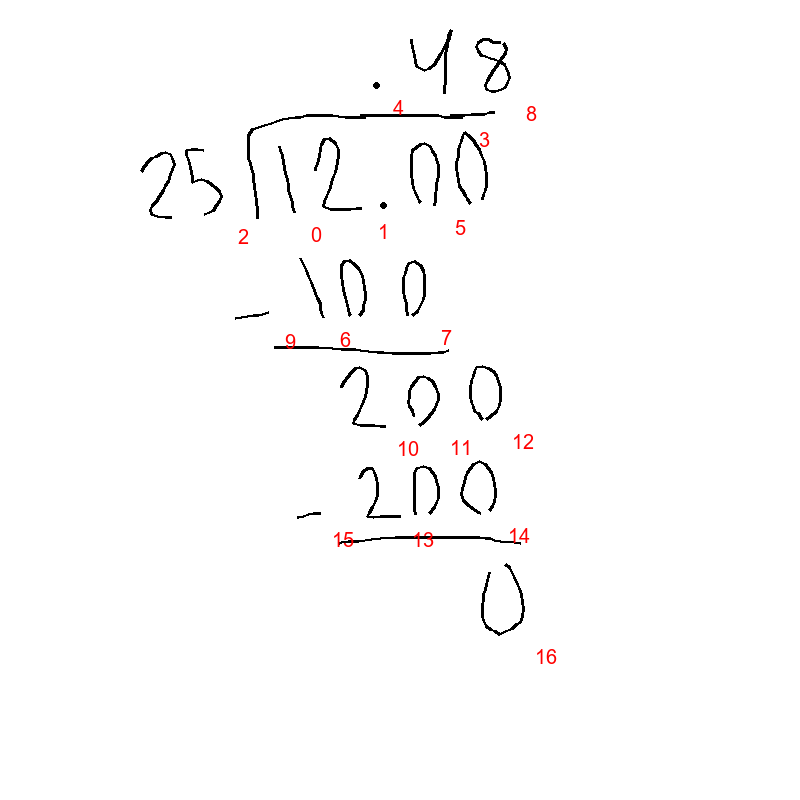 .48
4 8
25 12.00
3
2 0 1 5
- 100
9 6 7
200
10 11 12
- 200
15 13 14
0
16